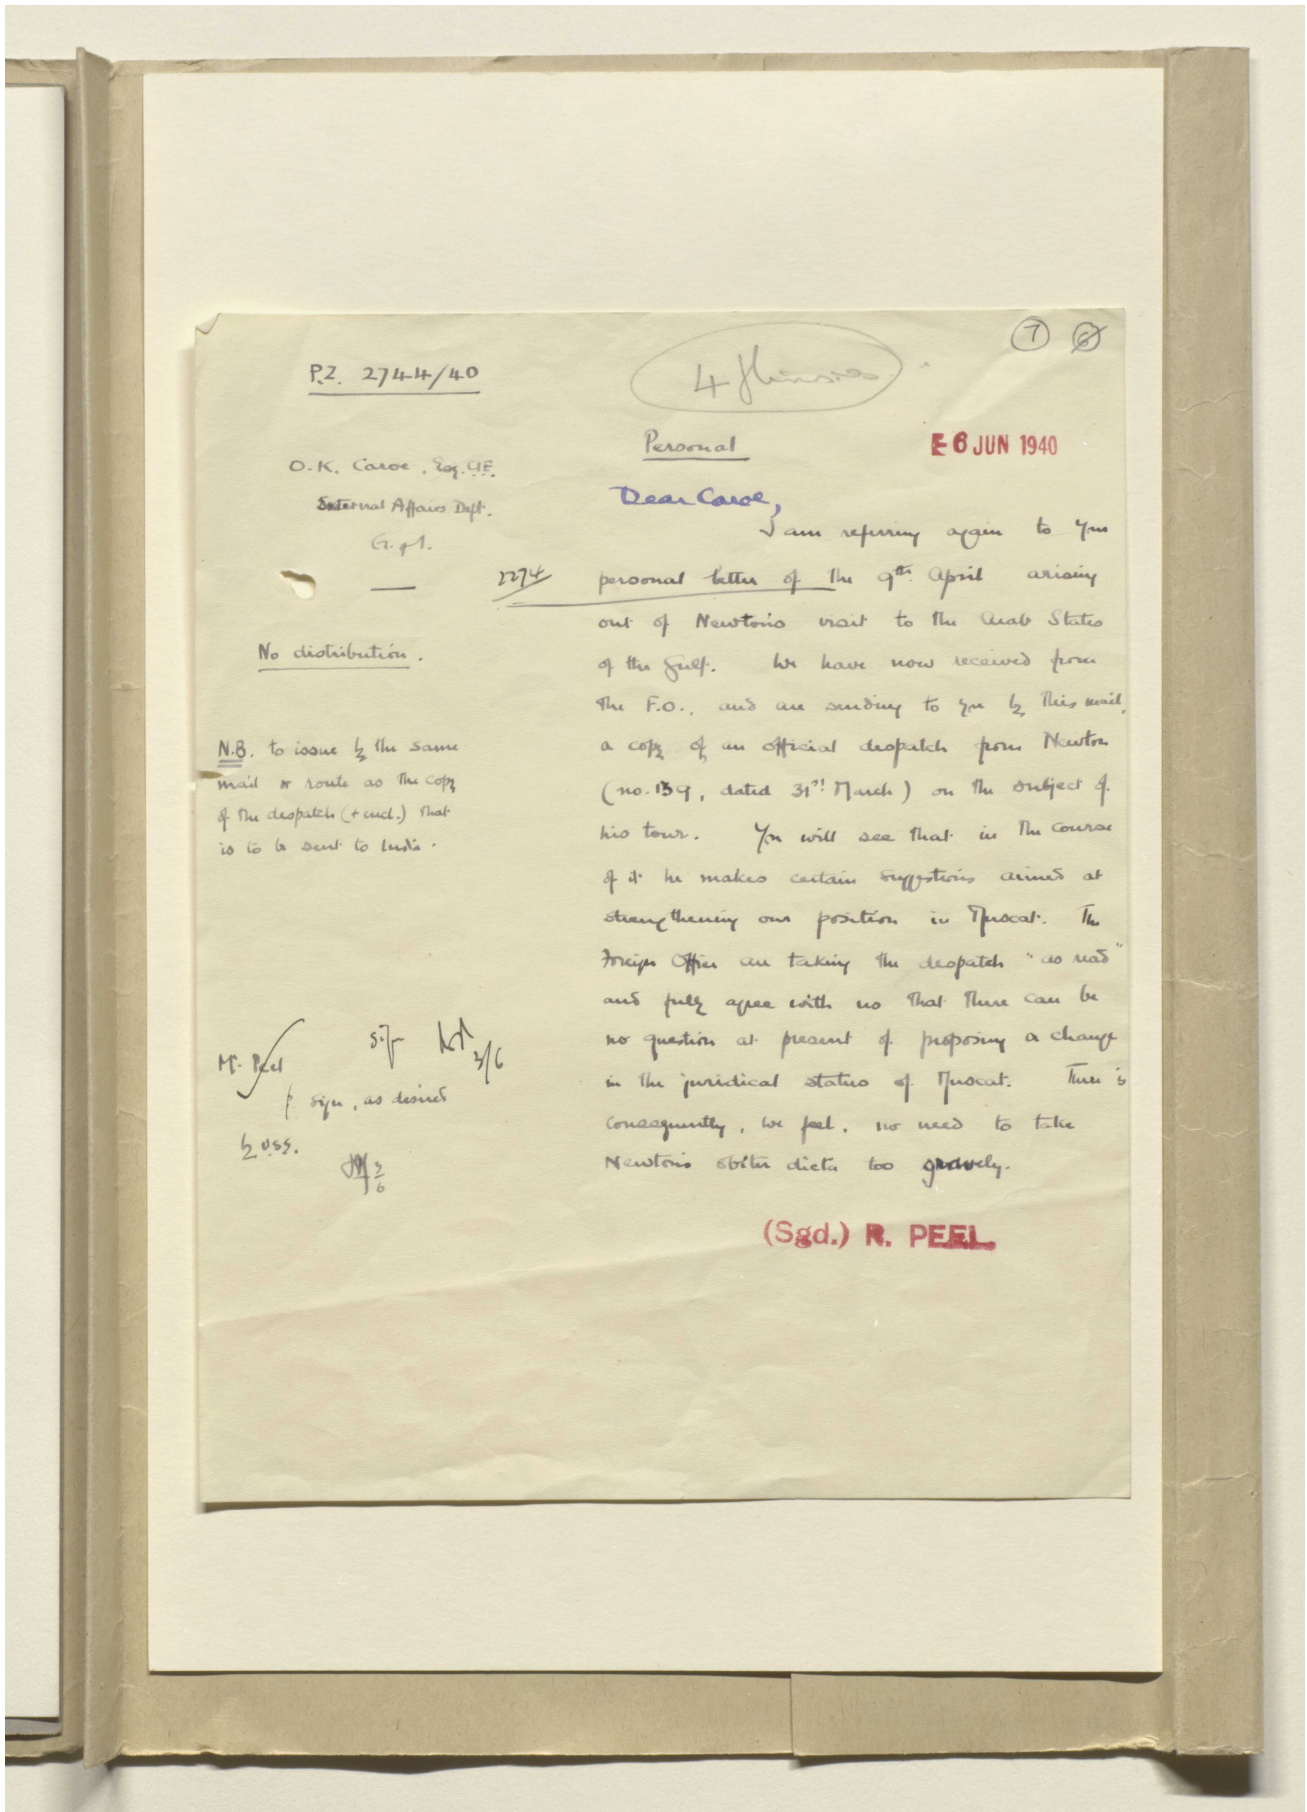 7 6
P.Z. 2744/40
4
Personal
6 JUN 1940
O.K. Caroe, Esq. CIE.
External Affairs Dept.
G. of I.
No distribution.
N.B. to issue by the same
mail or route as the copy
of the despatch (+ encl.) that
is to be sent to India.
Dear Caroe,
I am referring again to your
2274 personal letter of the 9th April arising
out of Newton's visit to the Arab States
of the Gulf. We have now received from
the F.O., and are sending to you by this mail,
a copy of an official despatch from Newton
(no. 139, dated 31st March) on the subject of
his tour. You will see that in the course
of it he makes certain suggestions aimed at
strengthening our position in Muscat. The
Foreign Office are taking the despatch "as read"
and fully agree with us that there can be
no question at present of proposing a change
in the juridical status of Muscat. There is
consequently, we feel, no need to take
Newton's obiter dicta too gravely.
(Sgd.) R. PEEL.
Mr. Peel
3/6
sign, as desired
by U.S.S.
3/6